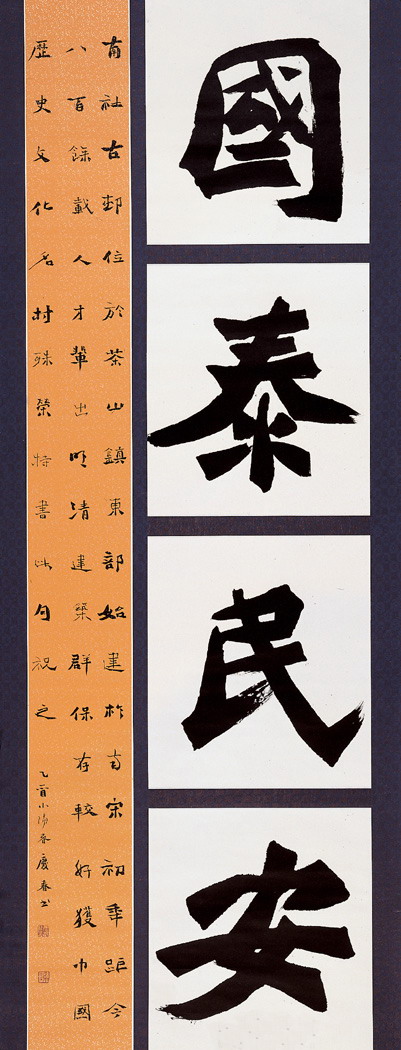 國泰民安
南社古邨位於茶山鎮東部始建於南宋初年距今
八百餘載人才輩出明清建築群保存較好獲中國
歷史文化名村殊榮特書此句祝之
乙酉小陽春慶春書